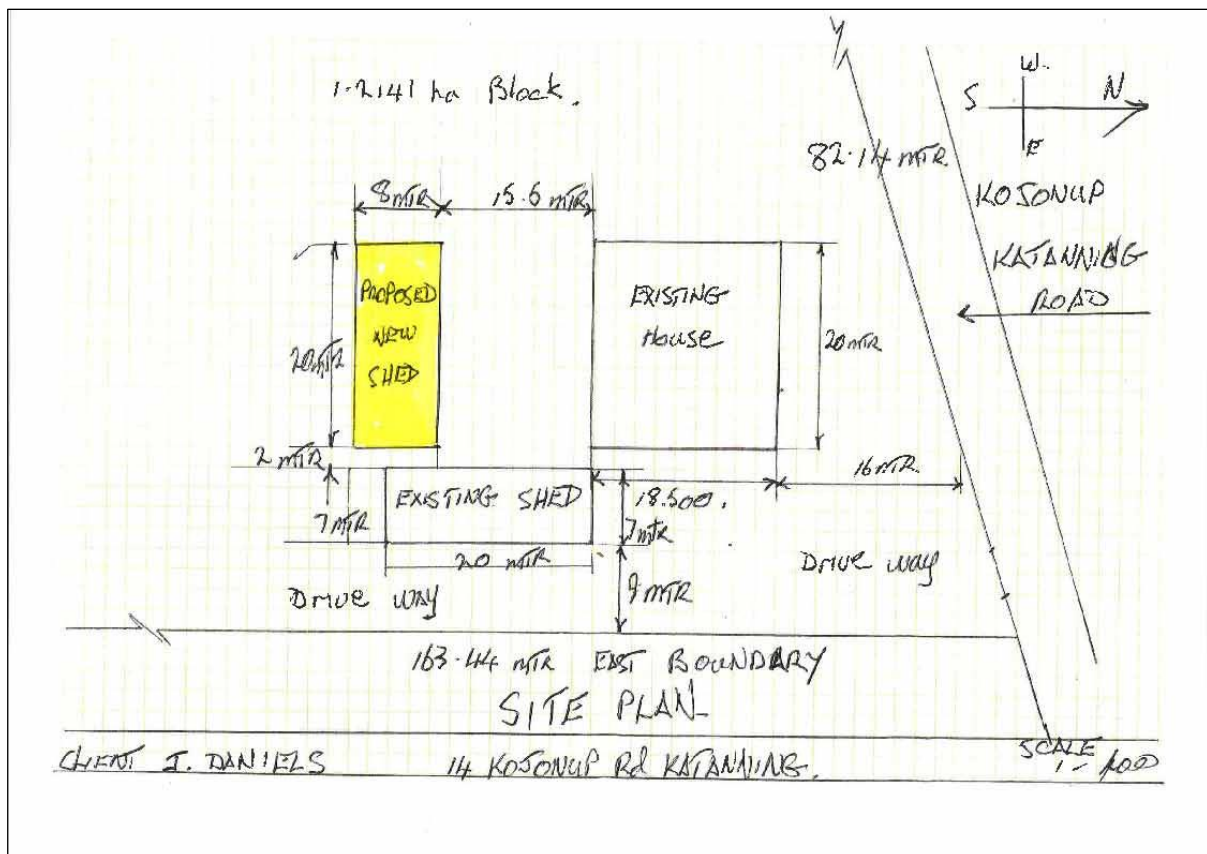 1.2141 ha Block.
W.
S
N
E
82.14 MTR.
KOJONUP
KATANNING
ROAD
8 MTR
15.6 MTR
PROPOSED
NEW
SHED
20 MTR
EXISTING
House
20 MTR
2 MTR
7 MTR
EXISTING SHED
18.500.
7 MTR
16 MTR.
20 MTR
9 MTR
Drive way
Drive way
163.44 MTR EAST BOUNDARY
SITE PLAN
CLIENT J. DANIELS
14 KOJONUP Rd KATANNING.
SCALE